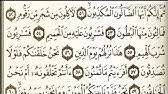 ثُمَّ إِنَّكُمْ أَيُّهَا الضَّالُّونَ الْمُكَذِّبُونَ ٥١ لَآكِلُونَ مِن شَجَرٍ مِّن زَقُّومٍ ٥٢
فَمَالِئُونَ مِنْهَا الْبُطُونَ ٥٣ فَشَارِبُونَ عَلَيْهِ مِنَ الْحَمِيمِ ٥٤ فَشَارِبُونَ
شُرْبَ الْهِيمِ ٥٥ هَذَا نُزُلُهُمْ يَوْمَ الدِّينِ ٥٦ نَحْنُ خَلَقْنَاكُمْ فَلَوْلَا
تُصَدِّقُونَ ٥٧ أَفَرَأَيْتُم مَّا تُمْنُونَ ٥٨